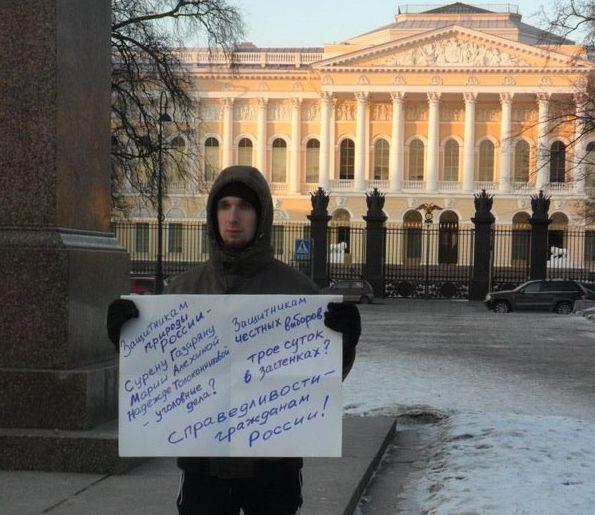 Защитникам
природы
России-
Сурену Газаряну
Марии Алехиной
Надежде Толоконниковой
- уголовные
дела?
Защитникам
честных выборов
трое суток
в застенках?
Справедливости-
гражданам
России!